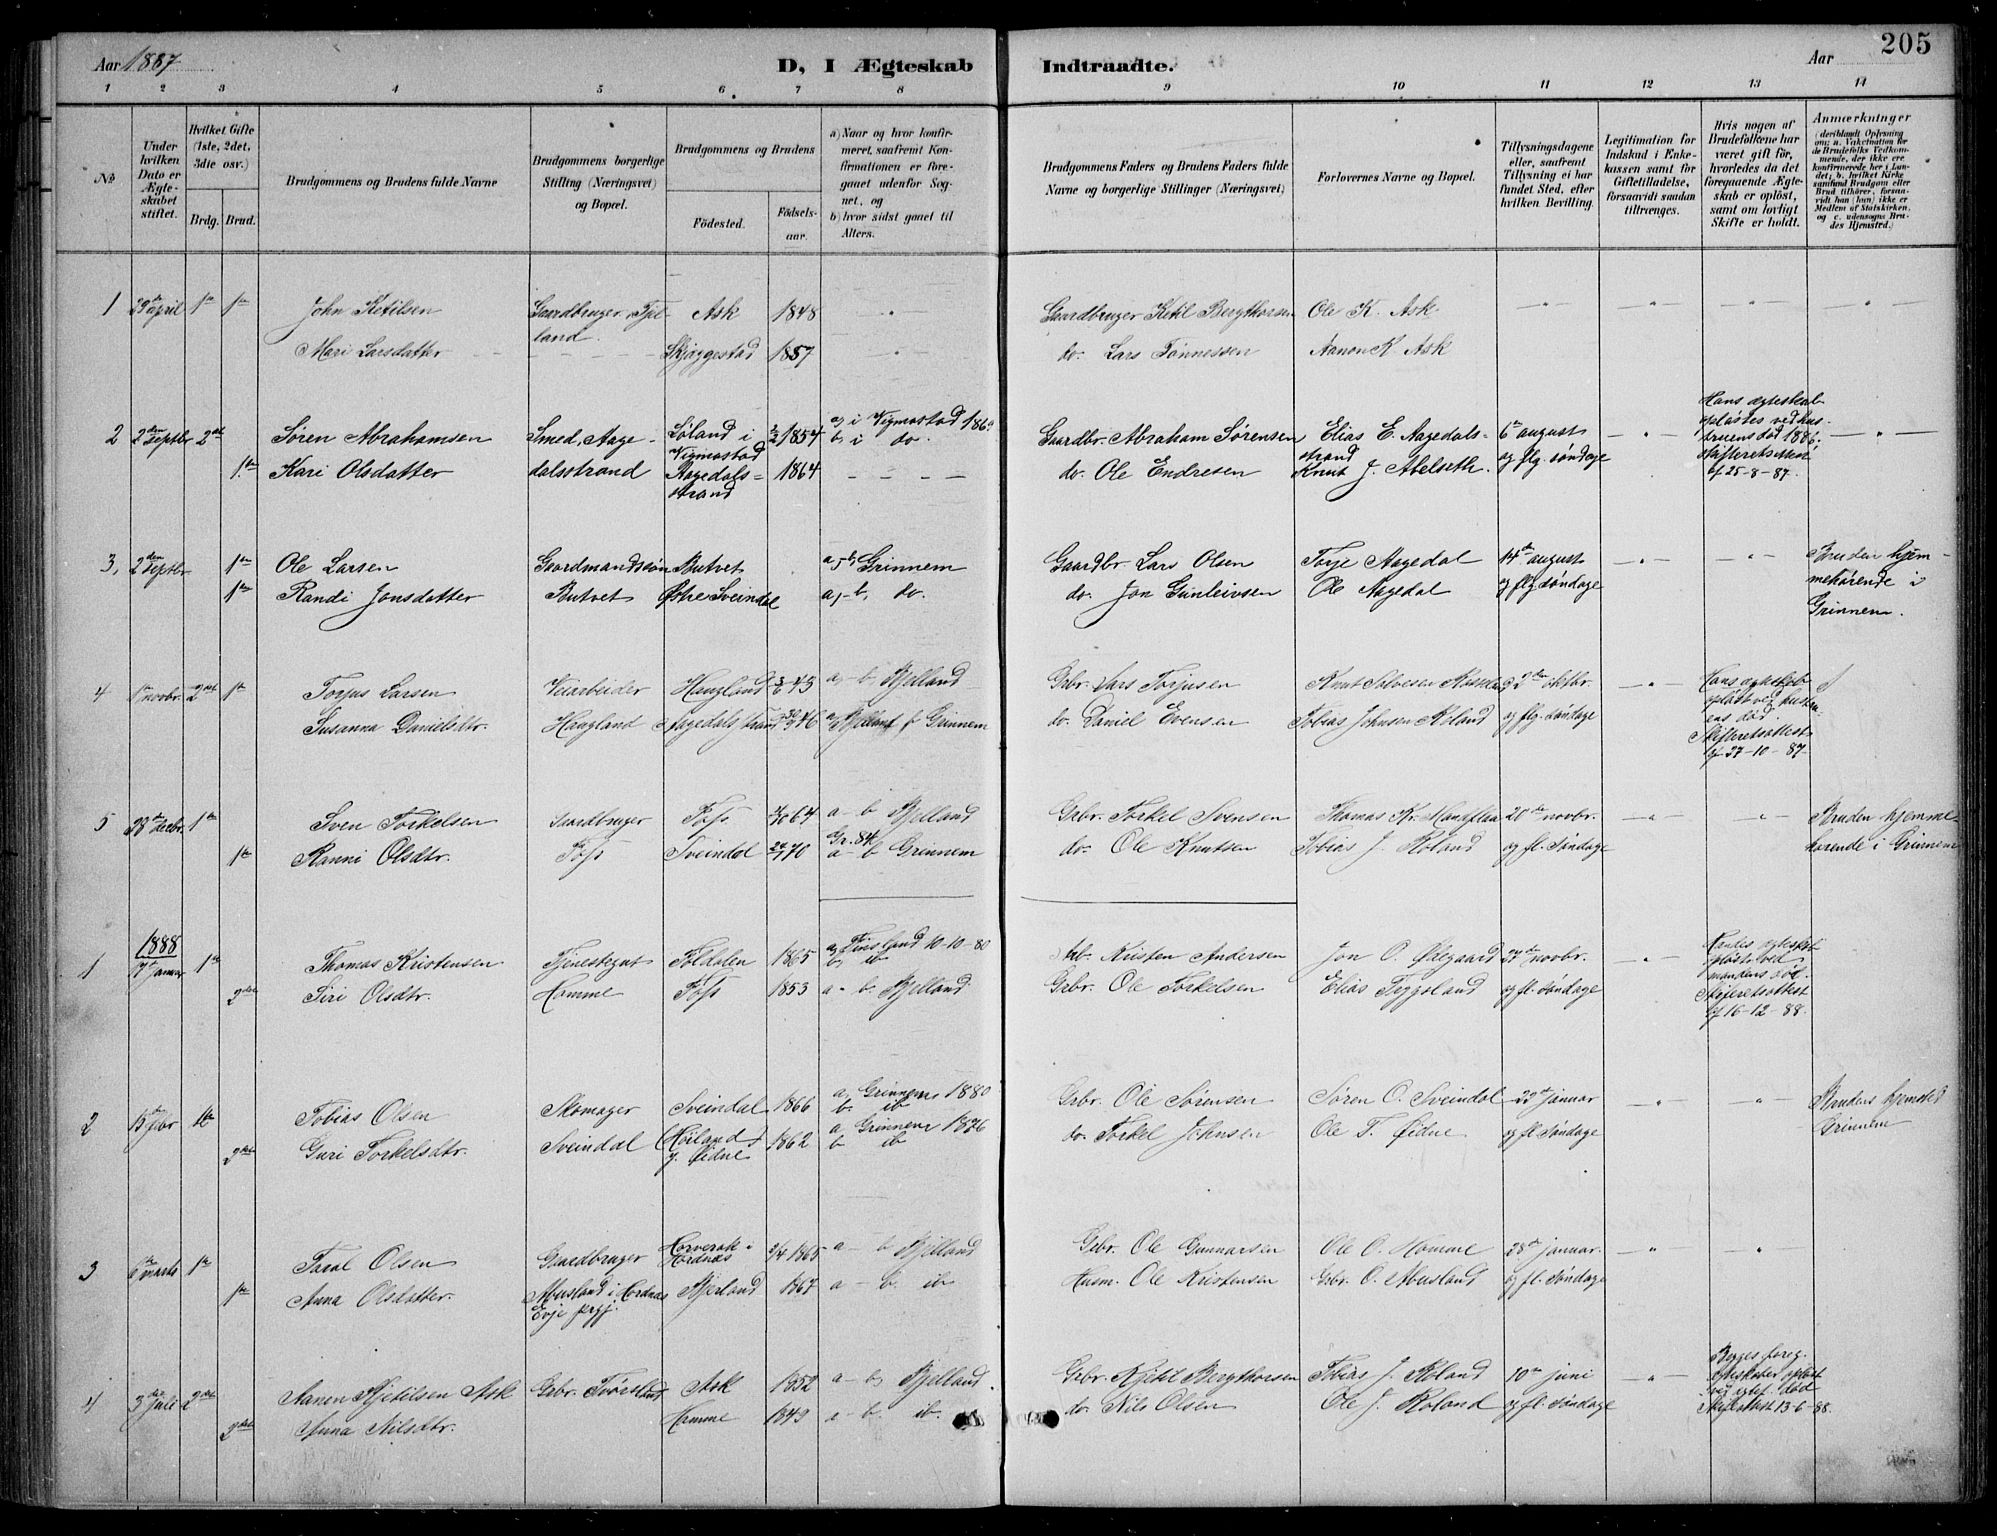 205
Aar 1887
D, I Ægteskab Indtraadte.
Aar
1 2 3 4 5 6 7 8 9 10 11 12 13 14
No
Under hvilken Dato er Ægteskabet stiftet.
Hvilket Gifte (1ste, 2det, 3die osv.)
Brdg. Brud.
Brudgommens og Brudens fulde Navne
Brudgommens borgerlige Stilling (Næringsvei) og Bopæl.
Brudgommens og Brudens
Fødested.
Fødselsaar.
a) Naar og hvor konfirmeret, saafremt Konfirmationen er foregaaet udenfor Sognet, og
b) hvor sidst gaaet til Alters.
Brudgommens Faders og Brudens Faders fulde Navne og borgerlige Stillinger (Næringsvei)
Forlovernes Navne og Bopæl.
Tillysningsdagene eller, saafremt Tillysning ei har fundet Sted, efter hvilken Bevilling.
Legitimation for Indskud i Enkekassen samt for Giftetilladelse, forsaavidt saadan tiltrænges.
Hvis nogen af Brudefolkene har været gift før, hvorledes da det foregaaende Ægteskab er opløst, samt om lovligt Skifte er holdt.
Anmærkninger
(deriblandt Oplysning om: a. Vakcination for de Brudefolks Vedkommende, der ikke ere konfirmerede her i Landet; b. hvilket Kirkesamfund Brudgom eller Brud tilhører, forsaavidt han (hun) ikke er Medlem af Statskirken, og c. udensogns Brudes Hjemsted.)
1 29de april 1ste 1ste John Ketilsen Gaardbruger, Fjelland. Ask 1848 " Gaardbruger Ketil Bergthorsen Ole K. Ask
Mari Larsdatter Skjæggestad 1857 " do. Lars Tønnessen Aanon K. Ask
2 2den septbr 2det Søren Abrahamsen Smed, Aagedalsstrand Løland i Vigmostad 2/2 1854 a) i Vigmostad b) i do. Gaardbr. Abraham Sørensen Elias E. Aagedalsstrand 6te august Hans egteskab opløstes ved hustruens død 1886; skifteretsattest af 25-8-87.
1ste Kari Olsdatter Aagedalsstrand 1864 do. Ole Endresen Knut J. Abelseth. og flg. søndage
3, 2den septbr 1ste Ole Larsen Gaardmandssøn Butvet a) b) Grinnem Gaardbr Lars Olsen Torje Aagedal 14de august Bruden hjemmehørende i Grinnem.
1ste Randi Jonsdatter Butvet Østre Sveindal a, - b, do. do. Jon Gunleivsen Ole Aagedal og flg søndage
4 1ste novbr. 2det 1ste Torjus Larsen Veiarbeider Haugland 3/6 43 a - b Bjelland Gbr. Lars Torjusen Knut Salvesen 2den oktbr. Hans egteskab opløst ved hustruens død. Skifteretsattest af 27-10-87
Susanna Danielsdtr. Haugland Aagedalsstrand 46 a Bjelland b Grinnem do. Daniel Evensen Tobias Johnsen Roland og flg. søndage
5 28de decbr. 1ste Sven Torkelsen Gaardbruger Foss /10 64 a - b Bjelland Grbr. Torkel Svensen Thomas Kr. Mandflaa 20de novbr. Bruden hjemmehørende i Grinnem
1ste Ranni Olsdtr. Foss Sveindal 24/ 70 Gr. 84 a - b Grinnem do. Ole Knutsen Tobias J. Roland og fl. søndage
1888
1 7de januar 1ste Thomas Kristensen Tjenestegut Foldalen 1865 a) Finsland 10-10-80 b. ib Kristen Andersen Jon O. Ødegaard 27de novbr. Hendes egteskab opløst ved mandens død. Skifteretsattest af 16-12-88.
2det Siri Olsdtr. Homme Foss 1853 a - b. Bjelland Grbr. Ole Torkelsen Elias Trygsland og fl. søndage
2 15de febr 1ste Tobias Olsen Skomager Sveindal 1866 a, Grinnem 1880 b. ib Grbr. Ole Sørensen Søren O. Sveindal 22de januar Brudens hjemsted Grinnem
2det Guri Torkelsdtr. Sveindal (Høiland) y. Øidne 1862 a Grinnem 1876 b ib do. Torkel Johnsen Ole T. Øidne og fl. søndage
3 6te marts 1ste Taral Olsen Gaardbruger Horverak i Hordnæs 2/4 1865 a - b Bjelland Grbr. Ole Gunnarsen Ole O. Homme 28de januar.
1ste Anna Olsdatter. Abusland i Hordnæs Evje prgj. Bjerland 1867 a - b. ib Husm. Ole Kristensen Grbr. O. Abusland og fl. søndage
4 3die juli 2det Aanen Kjetilsen Ask Grbr. Ask 1852 a - b, Bjelland. Grbr. Kjetil Bergthorsen Tobias J. Roland 10de juni Begges foreg. egteskaber opløst ved egtef. død Skifteattest 13-6-88.
2det Anna Nilsdtr. Homme 1849 a - b. ib. do. Nils Olsen Ole J. Roland og fl. søndage